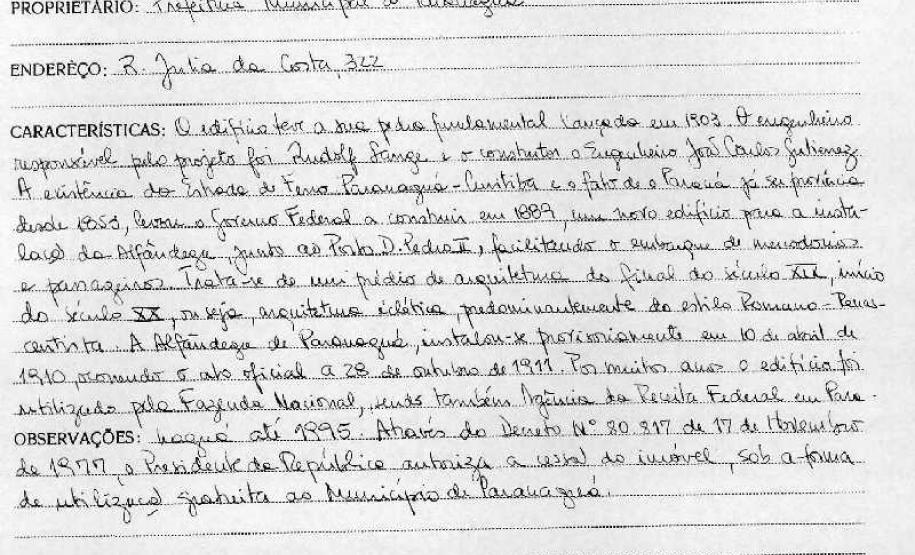 PROPRIETÁRIO: Prefeitura Municipal de Paranaguá
ENDERÊÇO: R. Julia da Costa, 322
CARACTERÍSTICAS: O edifício teve a sua pedra fundamental lançada em 1903. O engenheiro
responsável pelo projeto foi Rudolf Lange e o construtor o Engenheiro João Carlos Gutierrez.
A existência da Estrada de Ferro Paranaguá-Curitiba e o fato de o Paraná já ser província
desde 1853, levou o Governo Federal a construir em 1889, um novo edifício para a insta-
laçã da Alfândega, junto ao Porto D. Pedro II, facilitando o embarque de mercadorias
e passageiros. Trata-se de um prédio de arquitetura do final do século XIX, início
do século XX, ou seja, arquitetura eclética, predominantemente do estilo Romano-Renas-
centista. A Alfândega de Paranaguá, instalou-se provisoriamente em 10 de abril de
1910, ocorrendo o ato oficial a 28 de outubro de 1911. Por muitos anos o edifício foi
utilizado pela Fazenda Nacional, sendo também Agência da Receita Federal em Para-
OBSERVAÇÕES: naguá até 1995. Através do Decreto Nº 80.817 de 17 de Novembro
de 1977 o Presidente da República autoriza a cessão do imóvel, sob a forma
de utilização gratuita ao Município de Paranaguá.